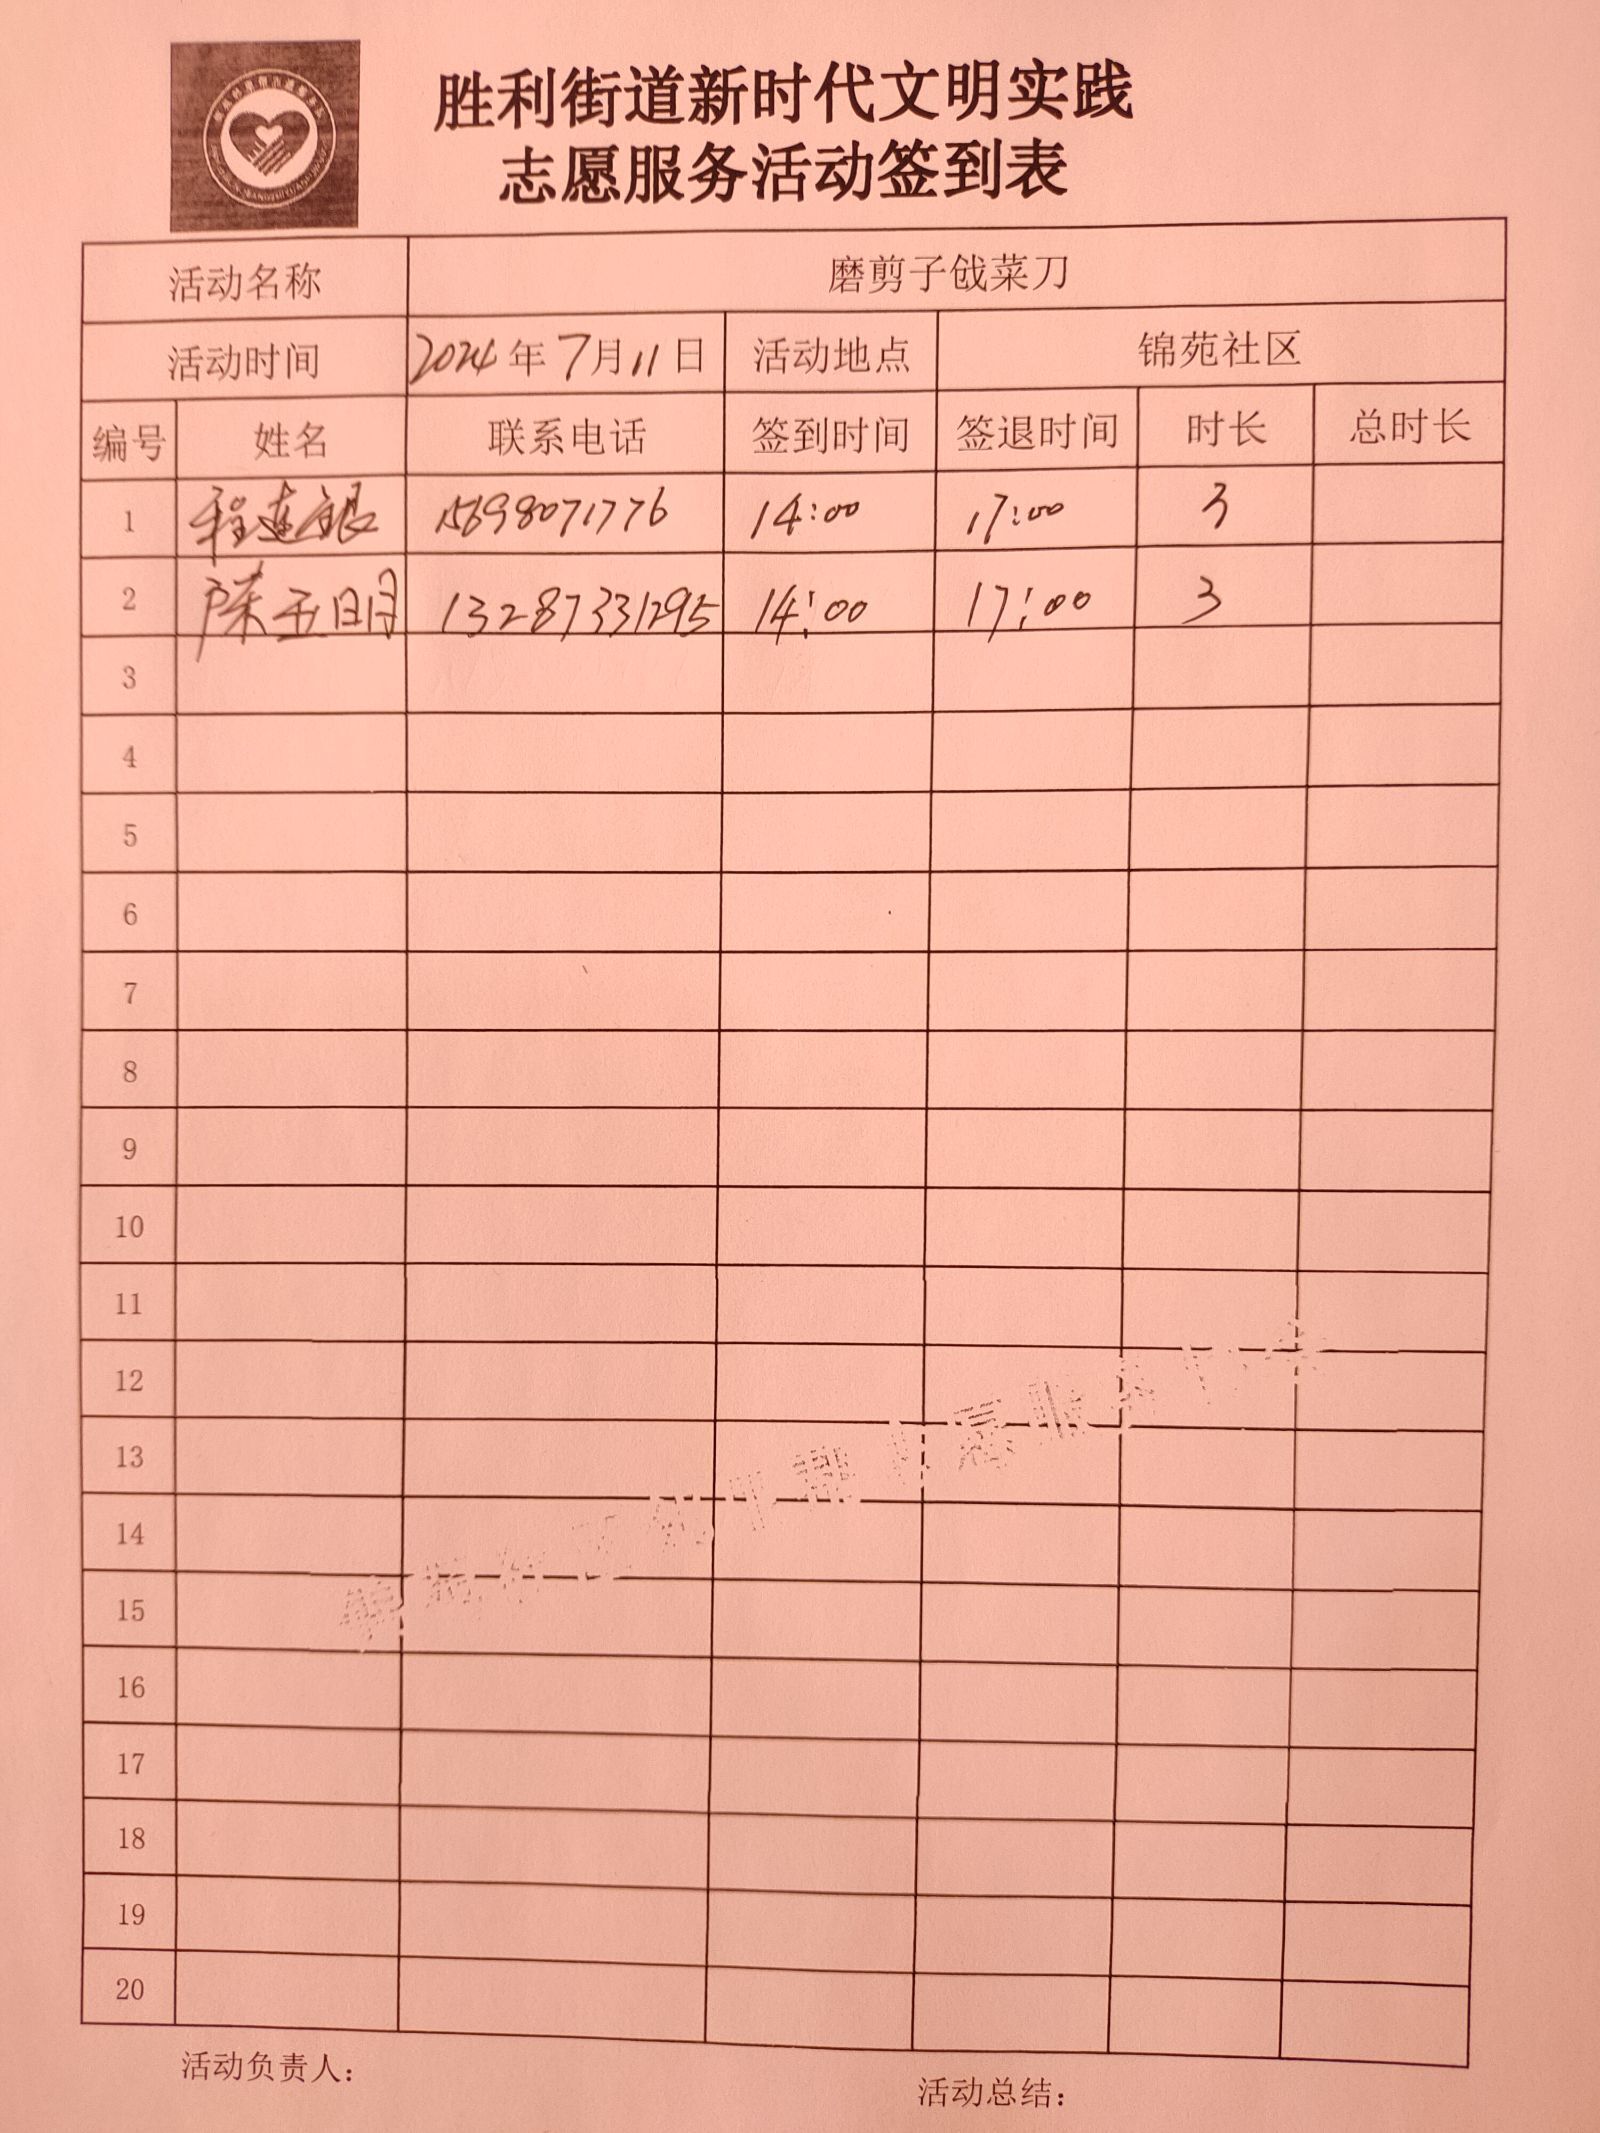 胜利街道新时代文明实践
志愿服务活动签到表
活动名称 磨剪子戗菜刀
活动时间 2024年7月11日 活动地点 锦苑社区
编号 姓名 联系电话 签到时间 签退时间 时长 总时长
1 程连银 15698071776 14:00 17:00 3
2 陈玉明 13287331295 14:00 17:00 3
3
4
5
6
7
8
9
10
11
12
13
14
15
16
17
18
19
20
活动负责人：
活动总结：